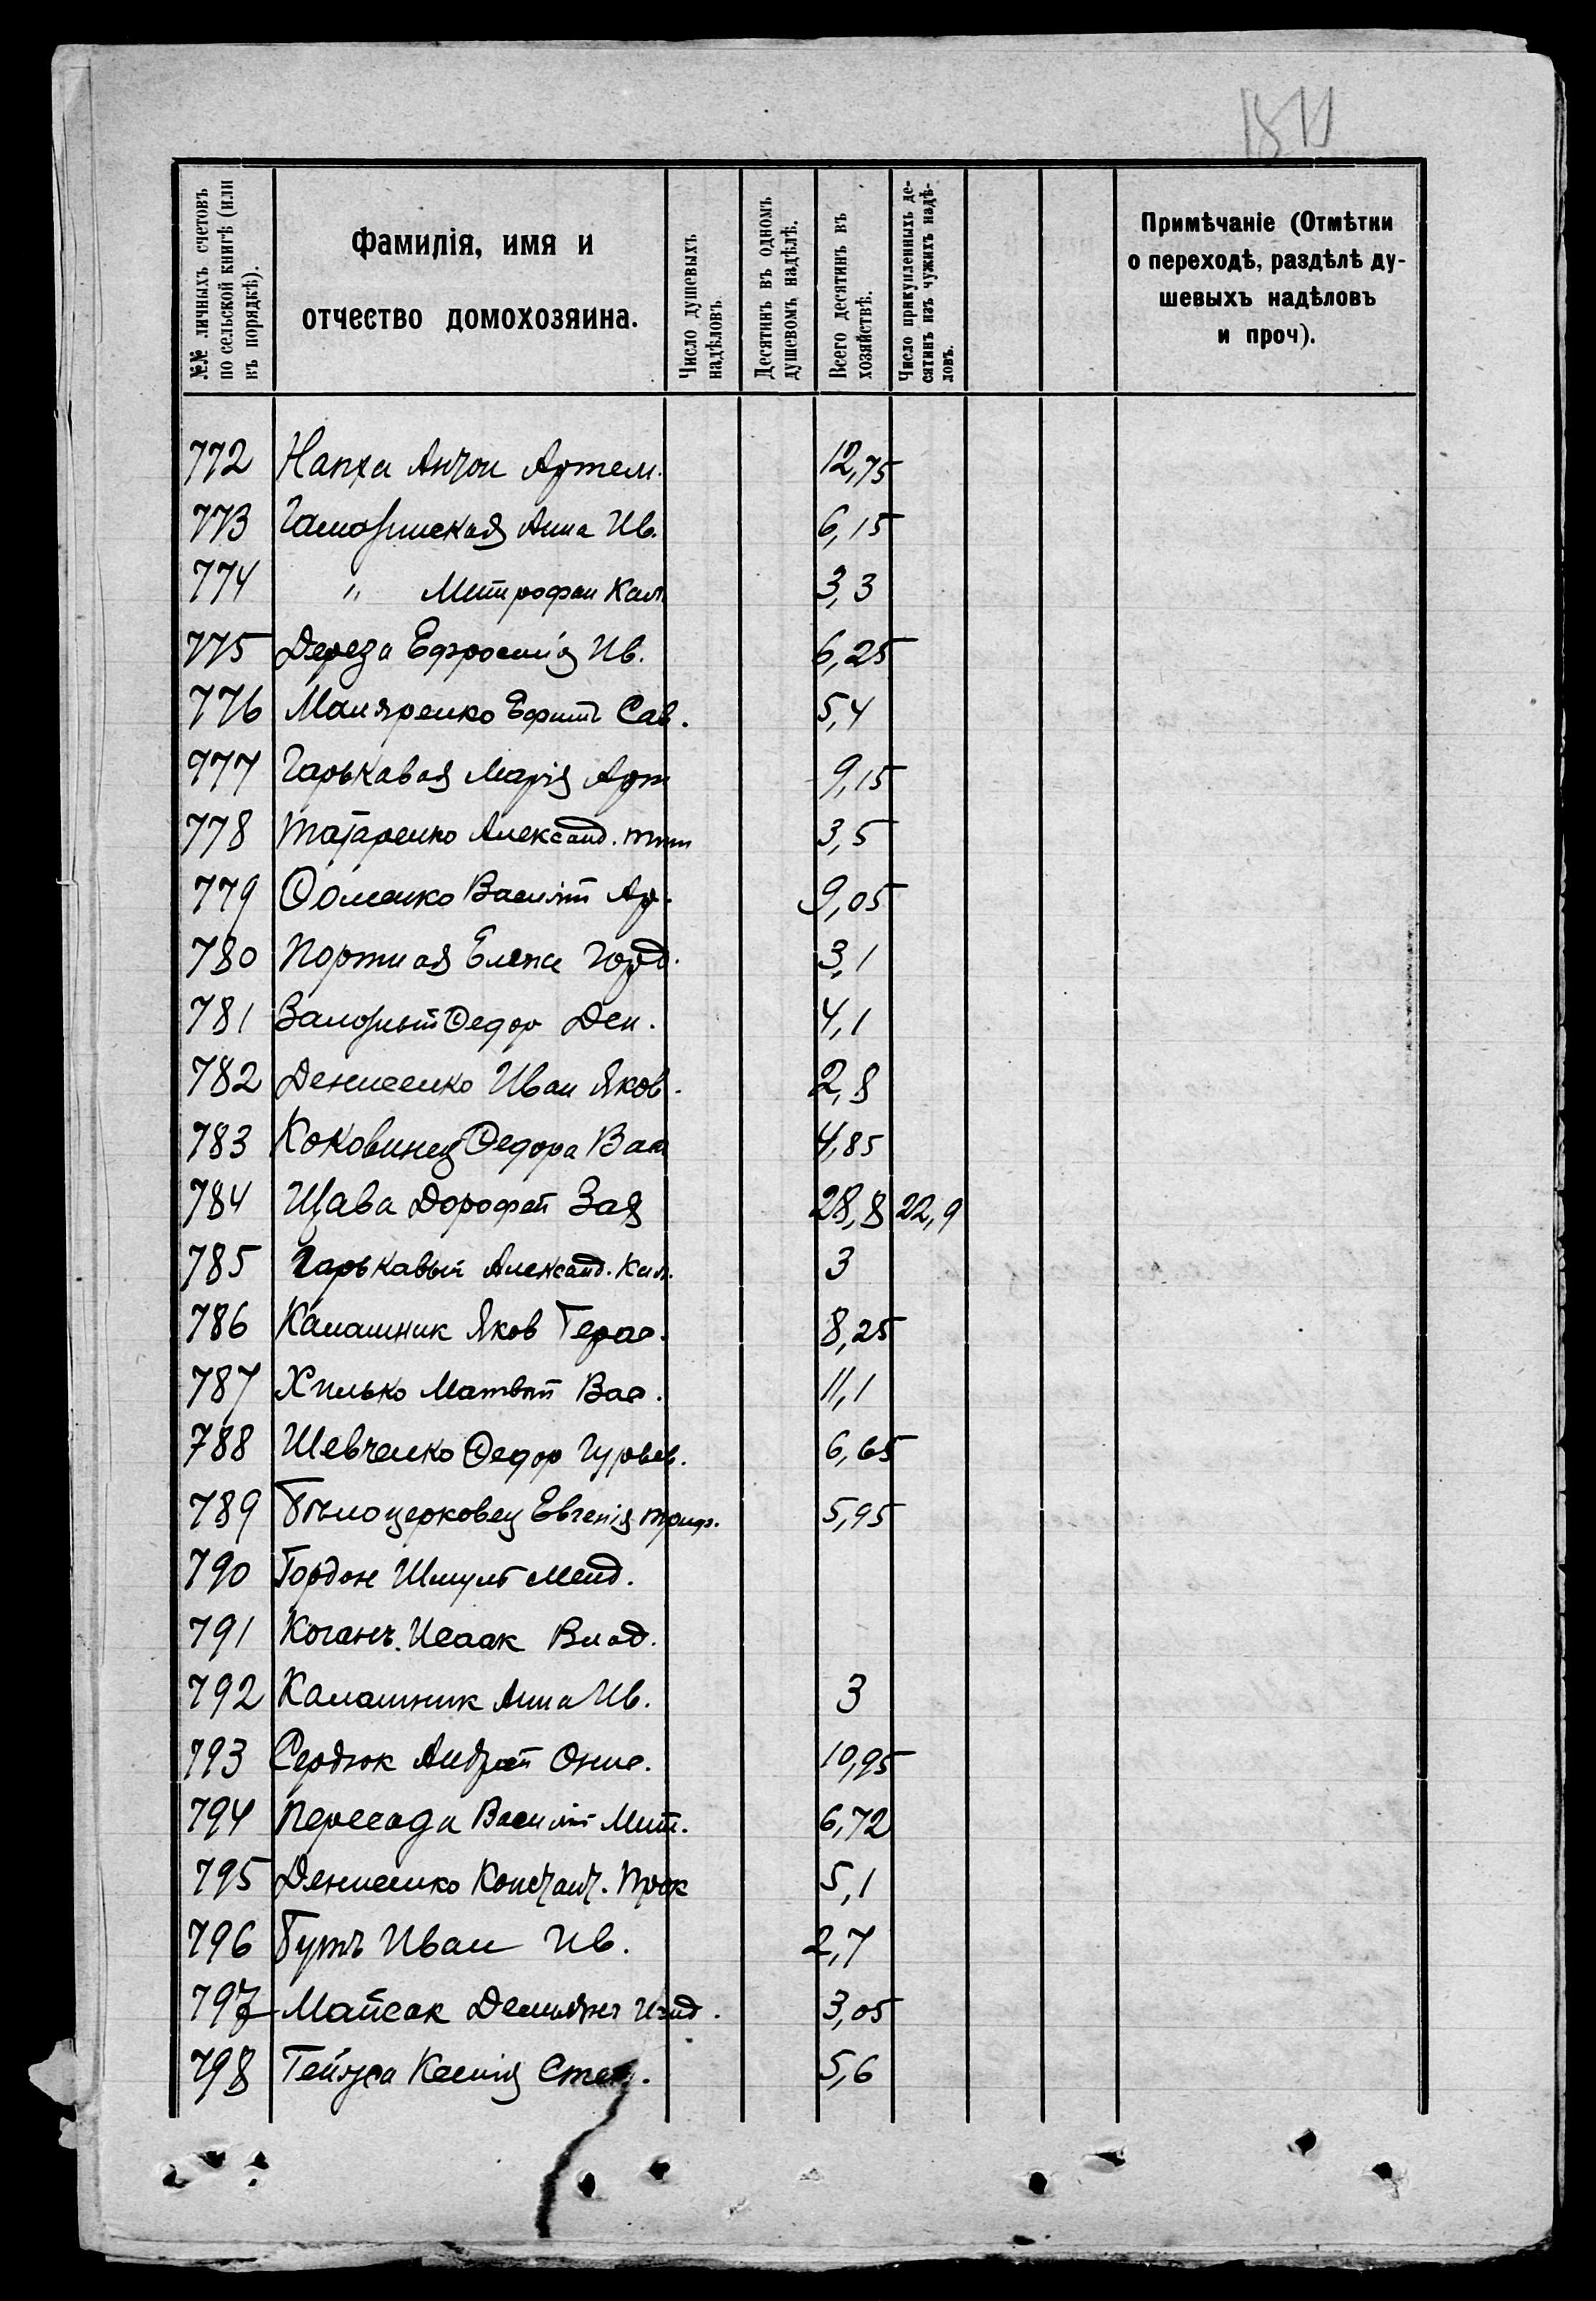 №№ личныхъ счетовъ
по сельской книгѣ (или
въ порядкѣ).
Фамилія, имя и
отчество домохозяина.
Число душевыхъ
надѣловъ.
Десятинъ въ одномъ
душевомъ надѣлѣ.
Всего десятинъ въ
хозяйствѣ.
Число прикупленныхъ де-
сятинъ изъ чужихъ надѣ-
ловъ.
Примѣчаніе (Отмѣтки
о переходѣ, раздѣлѣ ду-
шевыхъ надѣловъ
и проч).
772 Напха Антон Артем. 12,75
773 Анна Ив. 6,15
774 " Митрофан Кал. 3,3
775 Дереза Ефросинія Ив. 6,25
776 Маляренко Ефим Сав. 5,4
777 Гарькавая Марія Арт 9,15
778 Татаренко Александ. Тим 3,5
779 Фоменко Василій Ар. 9,05
780 Портная Елена Горд. 3,1
781 Федор Ден. 4,1
782 Денисенко Иван Яков. 2,8
783 Коковинец Федора Вас 4,85
784 Щава Дорофей Зах 28,8 22,9
785 Гарькавый Александ. Кал. 3
786 Калашник Яков Герас. 8,25
787 Хилько Матвѣй Вас. 11,1
788 Шевченко Федор Гурьев. 6,65
789 Бѣлоцерковец Евгенія Триф. 5,95
790 Гордон Шмуль Менд.
791 Коганъ Исаак Влад.
792 Калашник Анна Ив. 3
793 Сердюк Андрей Онис. 10,95
794 Пересада Василій Мит. 6,72
795 Денисенко Констант. Прок 5,1
796 Бутъ Иван Ив. 2,7
797 Майсак Демьянъ Изид. 3,05
798 Ксенія Степ. 5,6